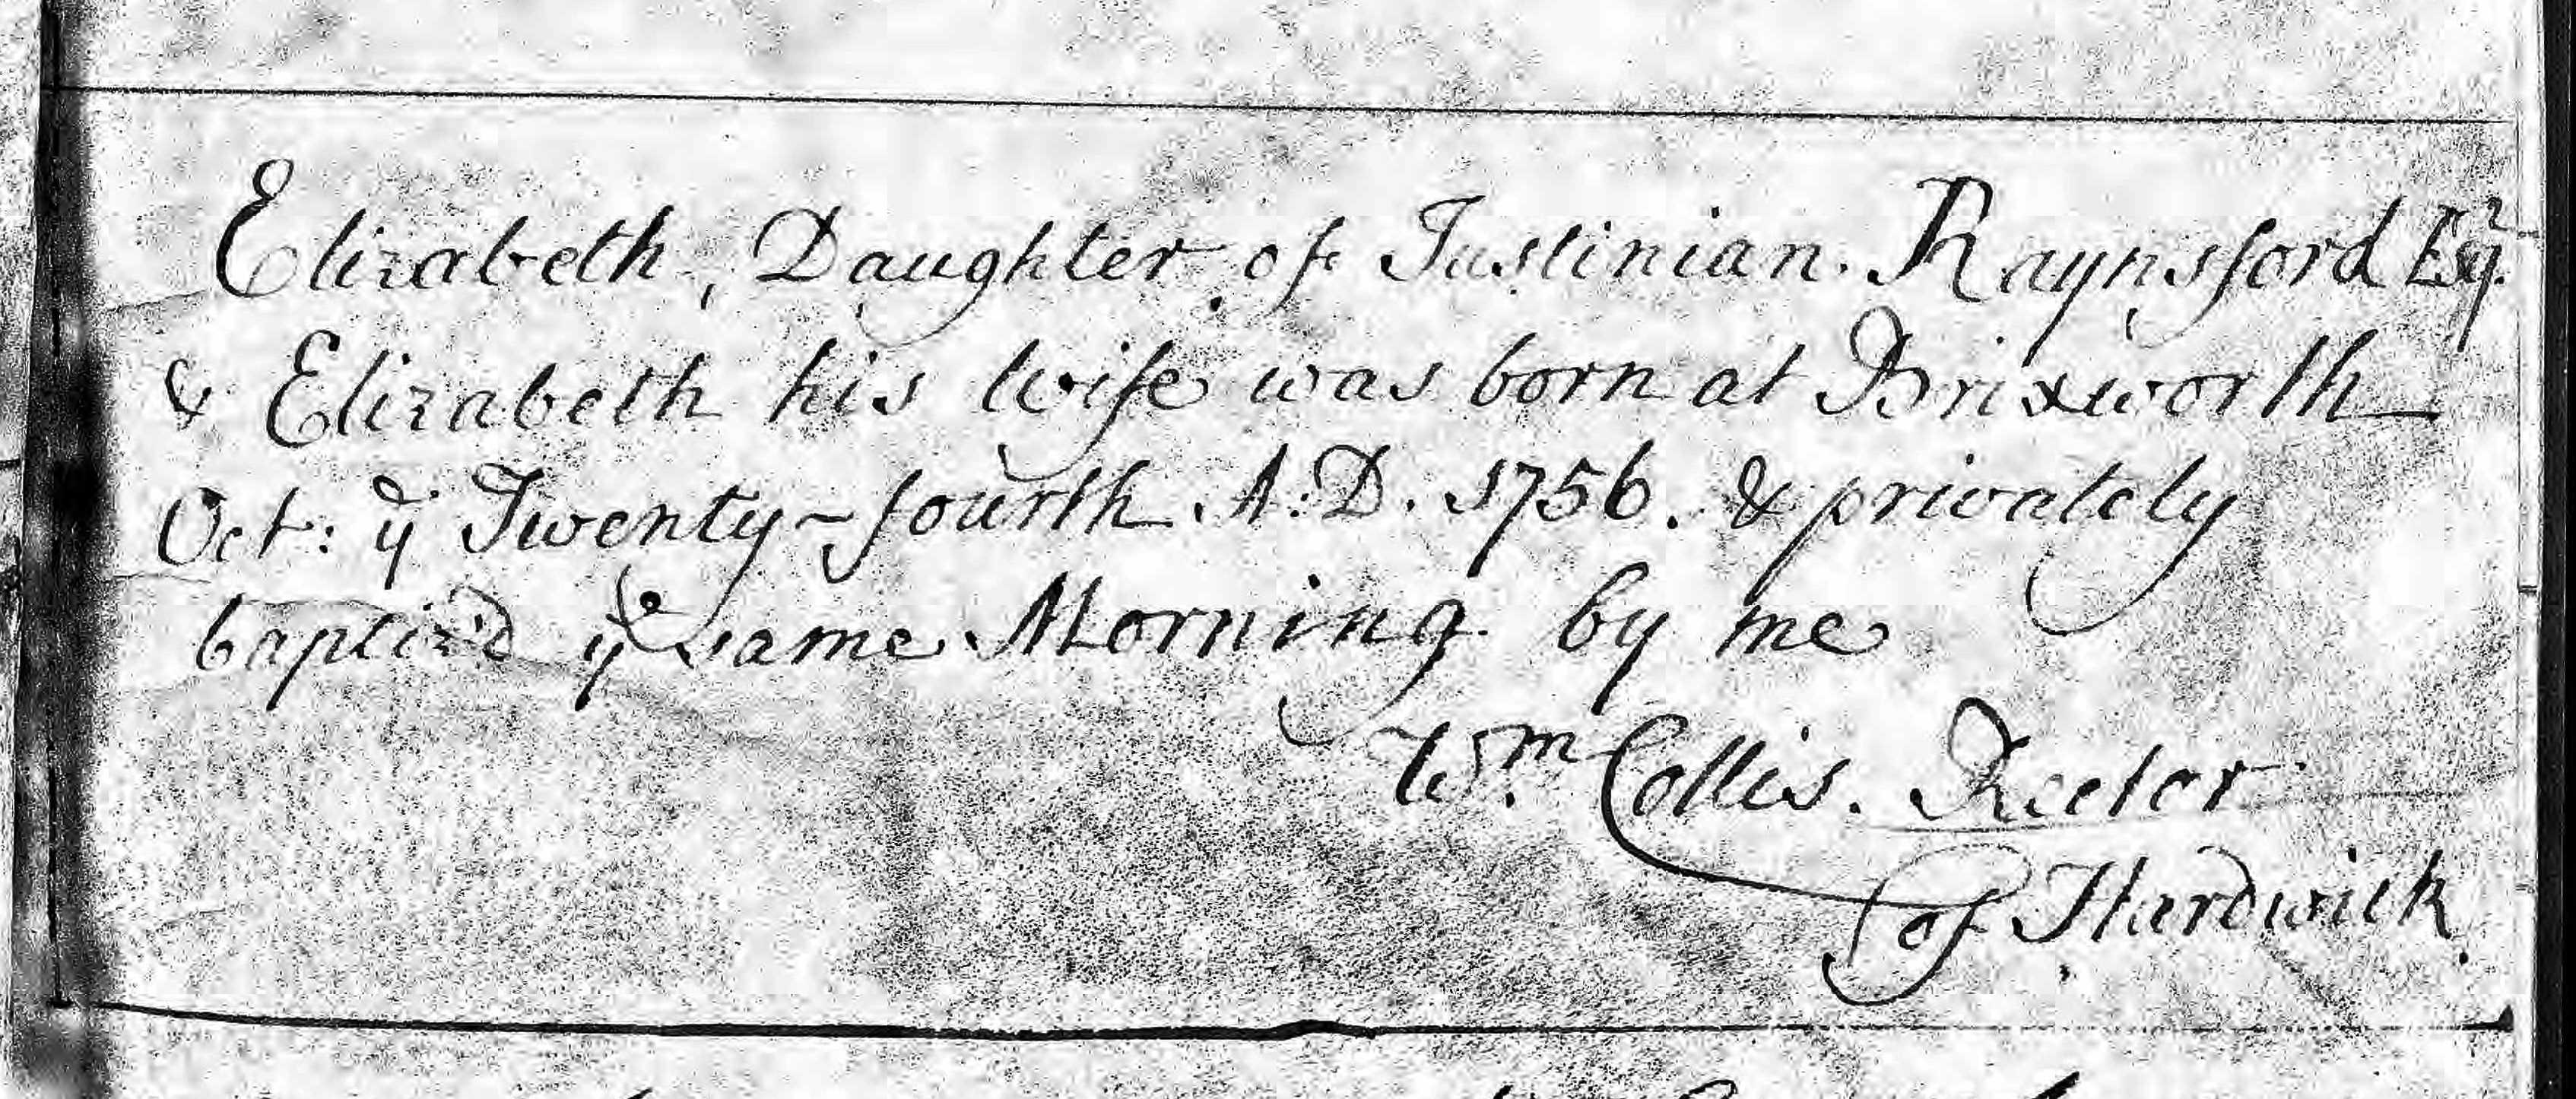 Elizabeth, Daughter of Justinian Raynsford Esqr.
& Elizabeth his Wife was born at Brixworth
Oct: ye Twenty-fourth A:D. 1756. & privately
baptiz'd ye same Morning by me
Wm. Collis. Rector
of Hardwick.